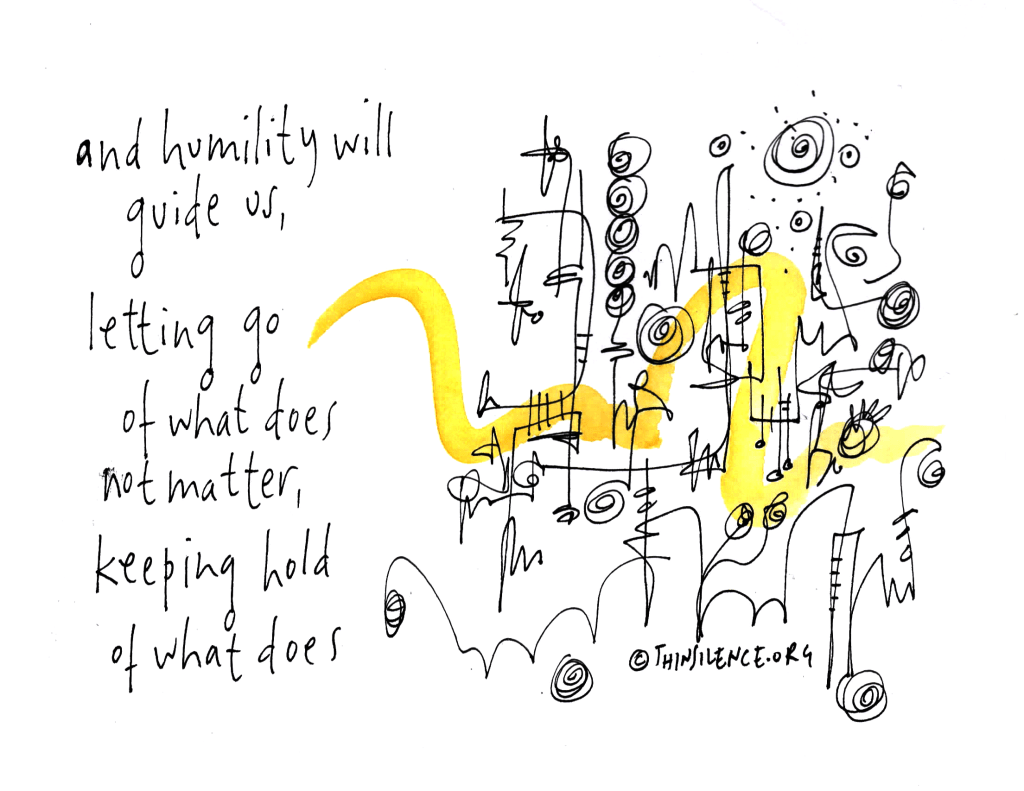 and humility will
guide us,
letting go
of what does
not matter,
keeping hold
of what does
© THINSILENCE.ORG